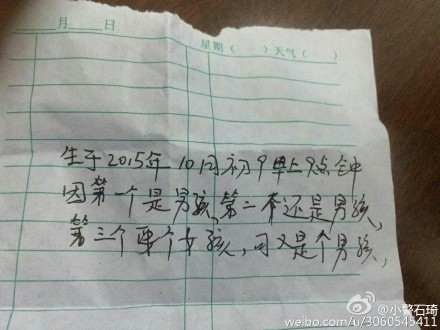 月 日 星期( )天气( )
生于2015年10月初9早上9点钟
因第一个是男孩,第二个还是男孩,
第三个要个女孩,可又是个男孩,
@小警石琦
weibo.com/u/3060545411